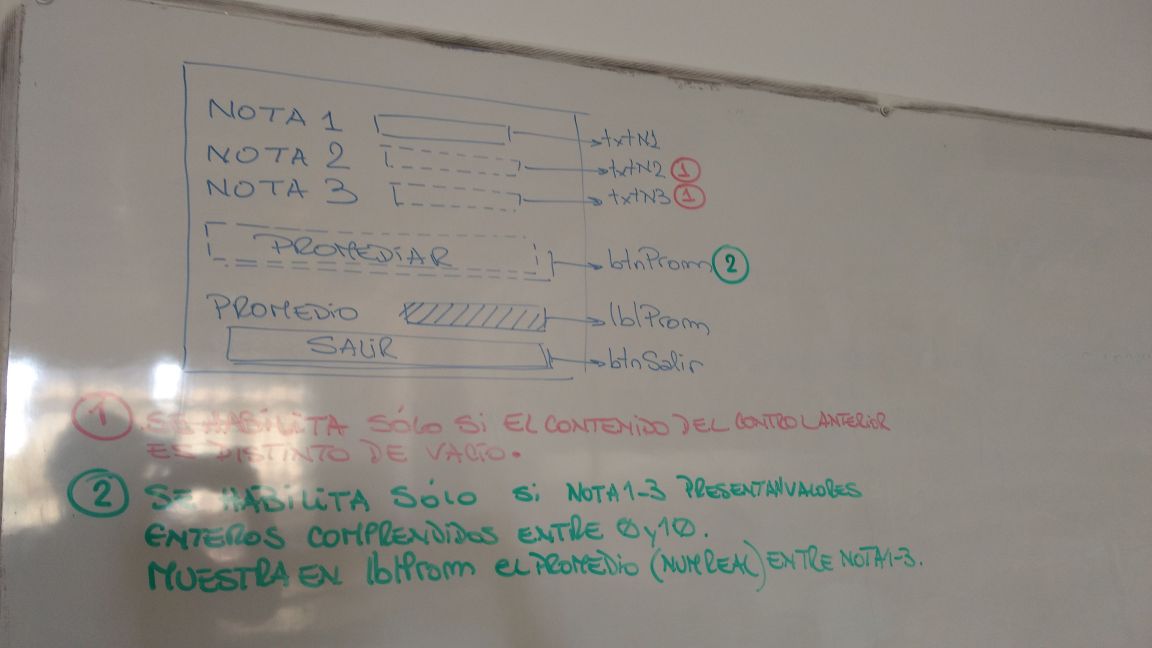 NOTA 1 txtN1
NOTA 2 txtN2 1
NOTA 3 txtN3 1
PROMEDIAR btnProm 2
PROMEDIO lblProm
SALIR btnSalir
1 SE HABILITA SÓLO SI EL CONTENIDO DEL CONTROL ANTERIOR
ES DISTINTO DE VACIO.
2 SE HABILITA SÓLO SI NOTA 1-3 PRESENTAN VALORES
ENTEROS COMPRENDIDOS ENTRE 0 y 10.
MUESTRA EN lblProm EL PROMEDIO (NUM REAL) ENTRE NOTA 1-3.